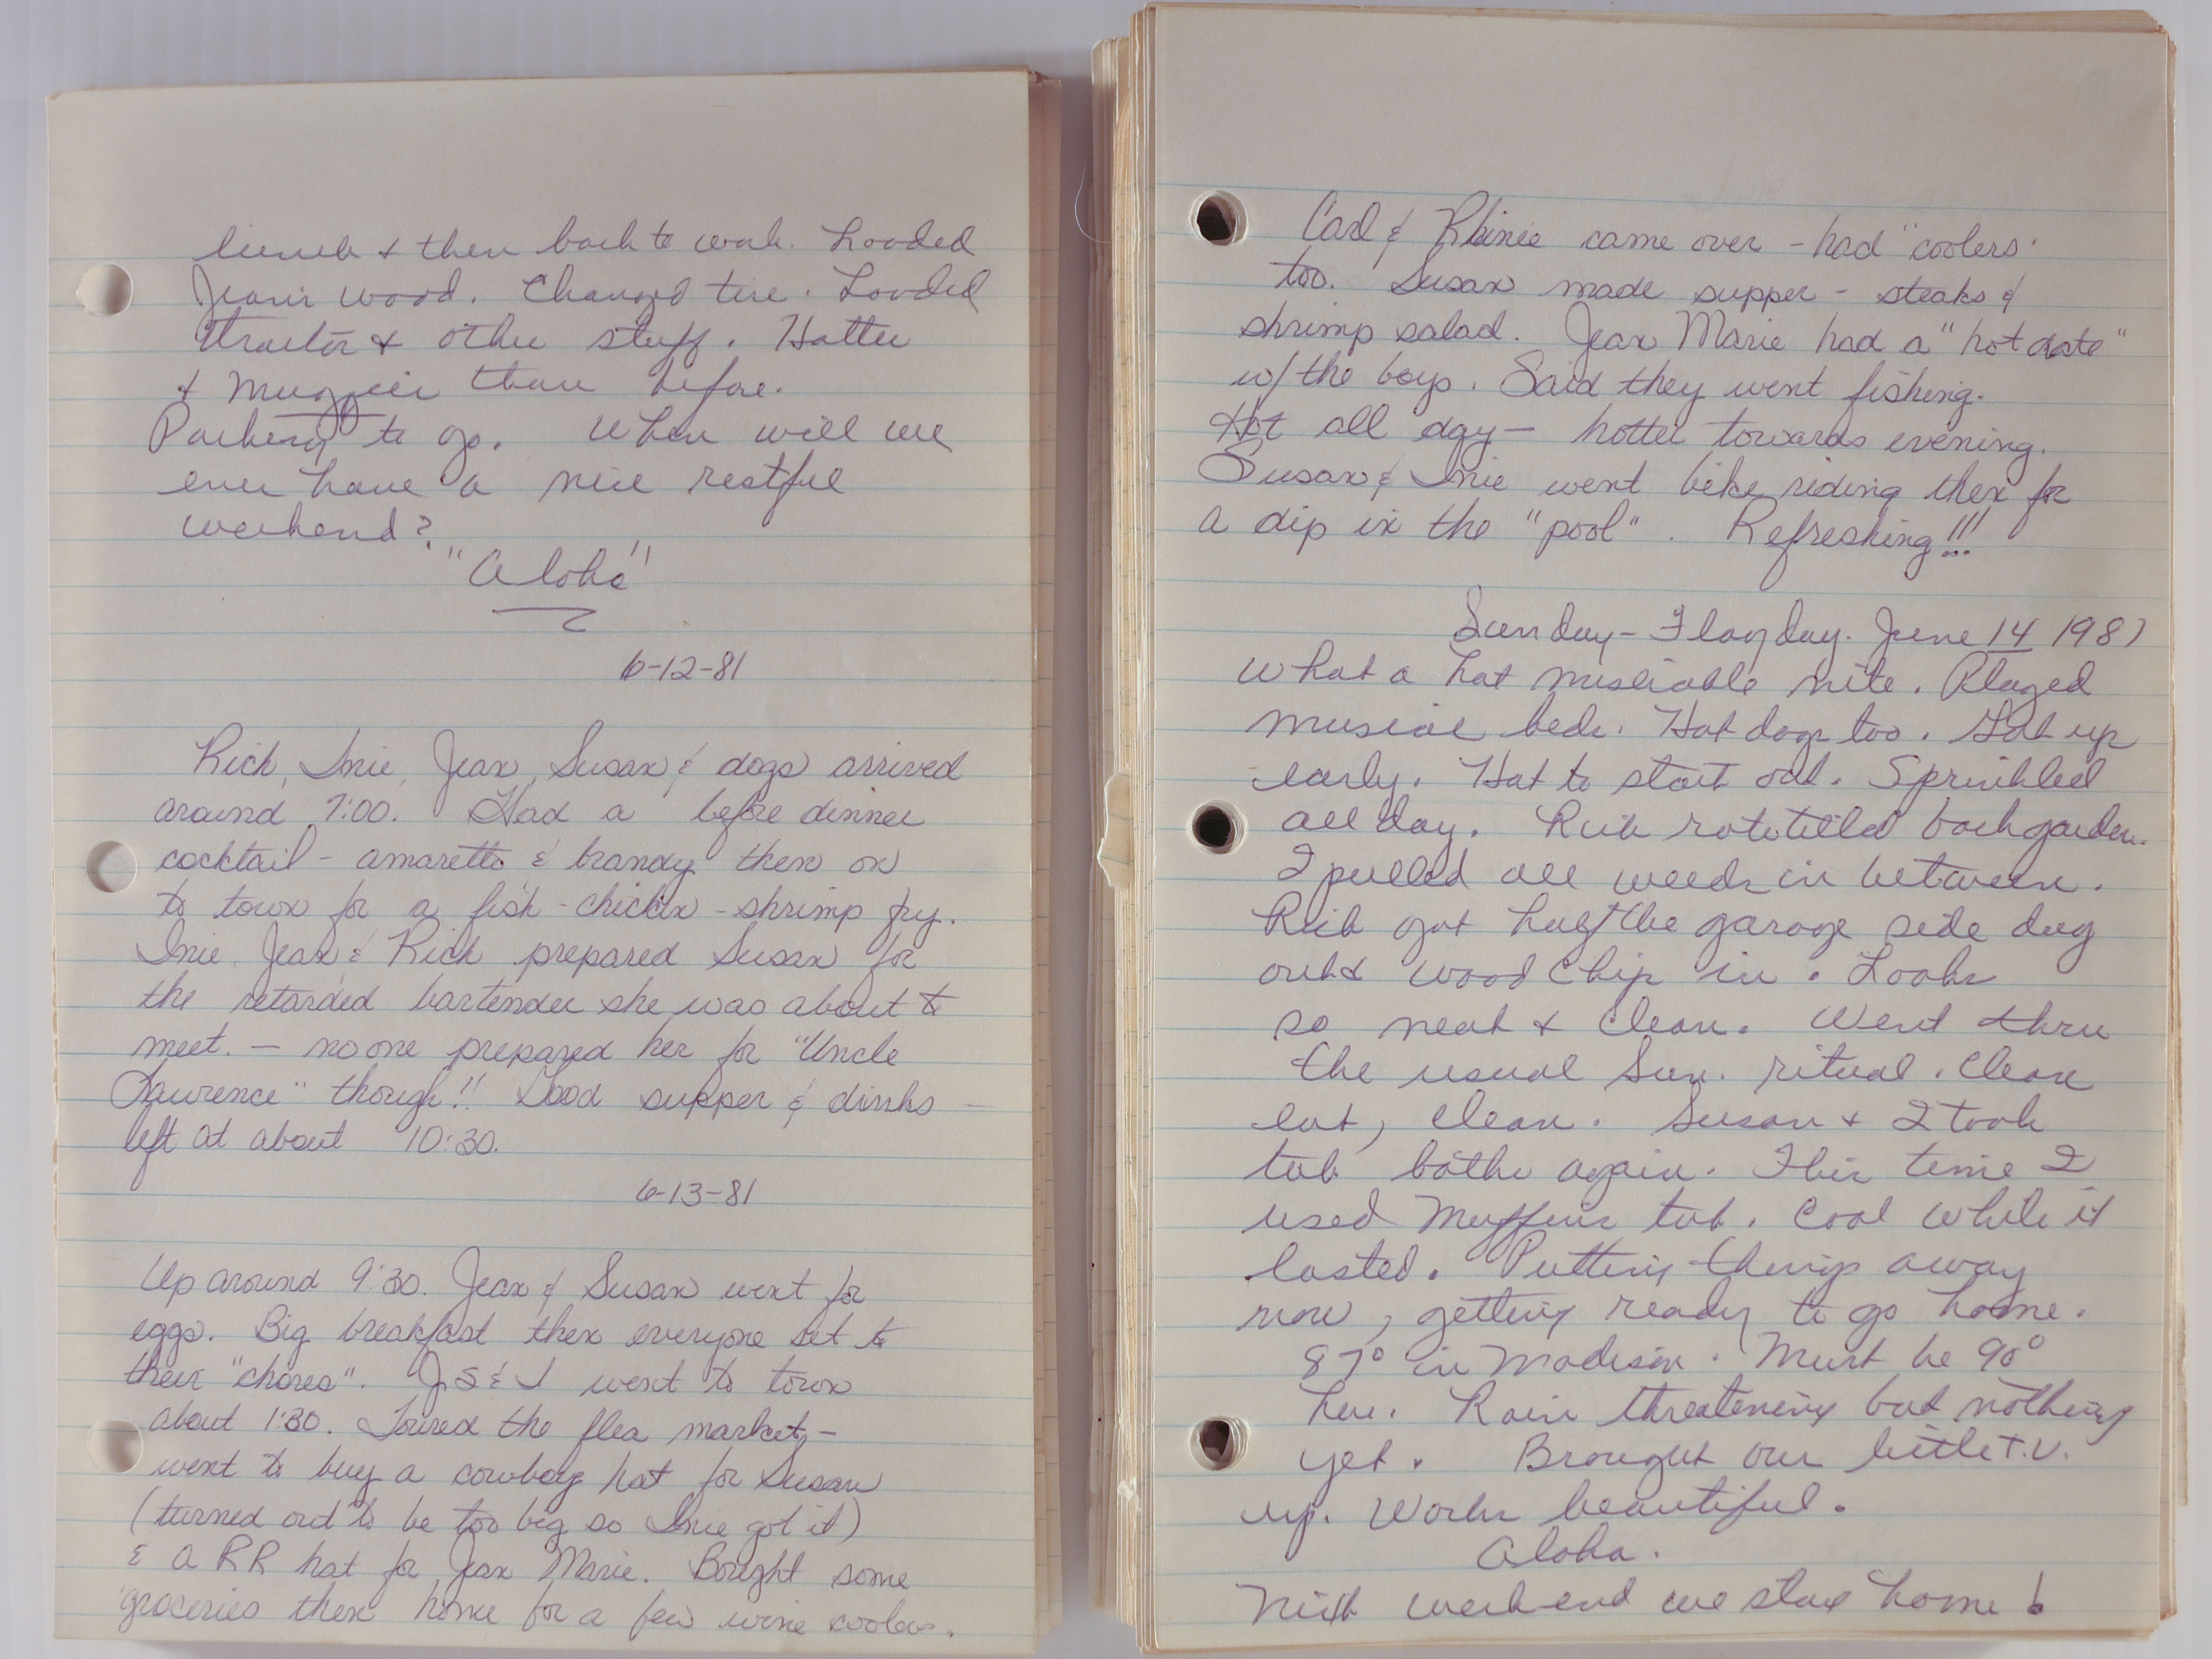 lunch & then back to work. Loaded
Jean's wood. Changed tire. Loaded
tractor & other stuff. Hotter
& muggier than before.
Packing to go. When will we
ever have a nice restful
weekend?
"Aloha"
6-12-81
Rich, Inie, Jean, Susan & dogs arrived
around 7:00. Had a before dinner
cocktail - amaretto & brandy then on
to town for a fish - chicken - shrimp fry.
Inie, Jean & Rich prepared Susan for
the retarded bartender she was about to
meet. — no one prepared her for "Uncle
Lawrence" though!! Good supper & drinks —
left at about 10:30.
6-13-81
Up around 9:30. Jean & Susan went for
eggs. Big breakfast then everyone set to
their "chores". J S & I went to town
about 1:30. Toured the flea market, -
went to buy a cowboy hat for Susan
(turned out to be too big so Inie got it)
& a RR hat for Jean Marie. Bought some
groceries then home for a few wine coolers.
Carl & came over - had "coolers"
too. Susan made supper - steaks &
shrimp salad. Jean Marie had a "hot date"
w/ the boys. Said they went fishing.
Hot all day — hotter towards evening.
Susan & Inie went bike riding then for
a dip in the "pool". Refreshing!!!
Sunday - Flag day. June 14 1981
What a hot miserable nite. Played
musical beds. Hot dogs too. Got up
early. Hot to start out. Sprinkled
all day. Rich rototilled back garden.
I pulled all weeds in between.
Rich got half the garage side dug
out & wood chip in. Looks
so neat & clean. Went thru
the usual Sun. ritual. Clean
eat, clean. Susan & I took
tub baths again. This time I
used Muffins tub. Cool while it
lasted. Putting things away
now, getting ready to go home.
87° in Madison. Must be 90°
here. Rain threatening but nothing
yet. Brought our little T.V.
up. Works beautiful.
Aloha.
Next weekend we stay home!